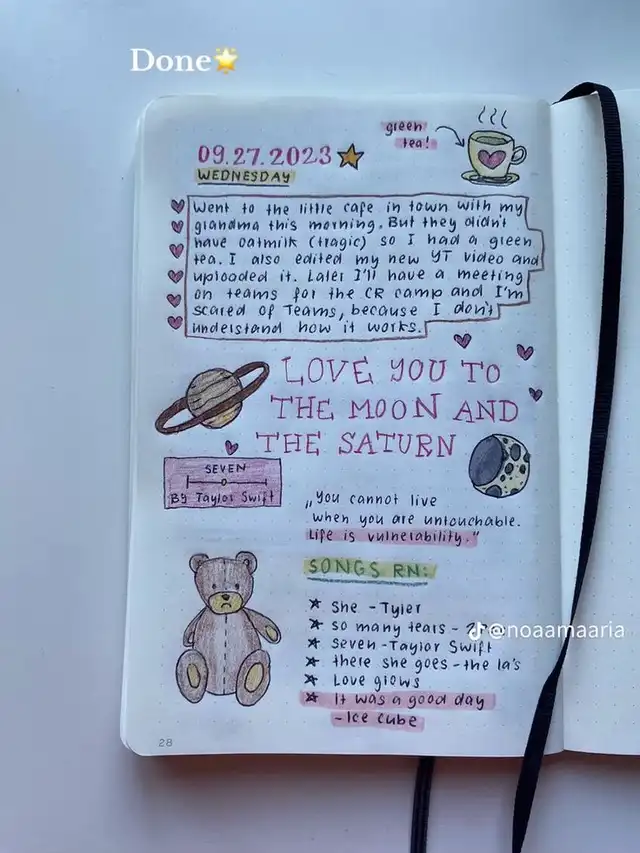 Done
green
tea!
09.27.2023
WEDNESDAY
Went to the little cafe in town with my
grandma this morning. But they didn't
have oatmilk (tragic) so I had a green
tea. I also edited my new YT video and
uploaded it. Later I'll have a meeting
on teams for the CR camp and I'm
scared of Teams, because I don't
understand how it works.
LOVE YOU TO
THE MOON AND
THE SATURN
SEVEN
By Taylor Swift
„You cannot live
when you are untouchable.
Life is vulnerability."
SONGS RN:
She - Tyler
so many tears -
seven - Taylor Swift
there she goes - the la's
Love grows
It was a good day
- Ice cube
@noaamaaria
28